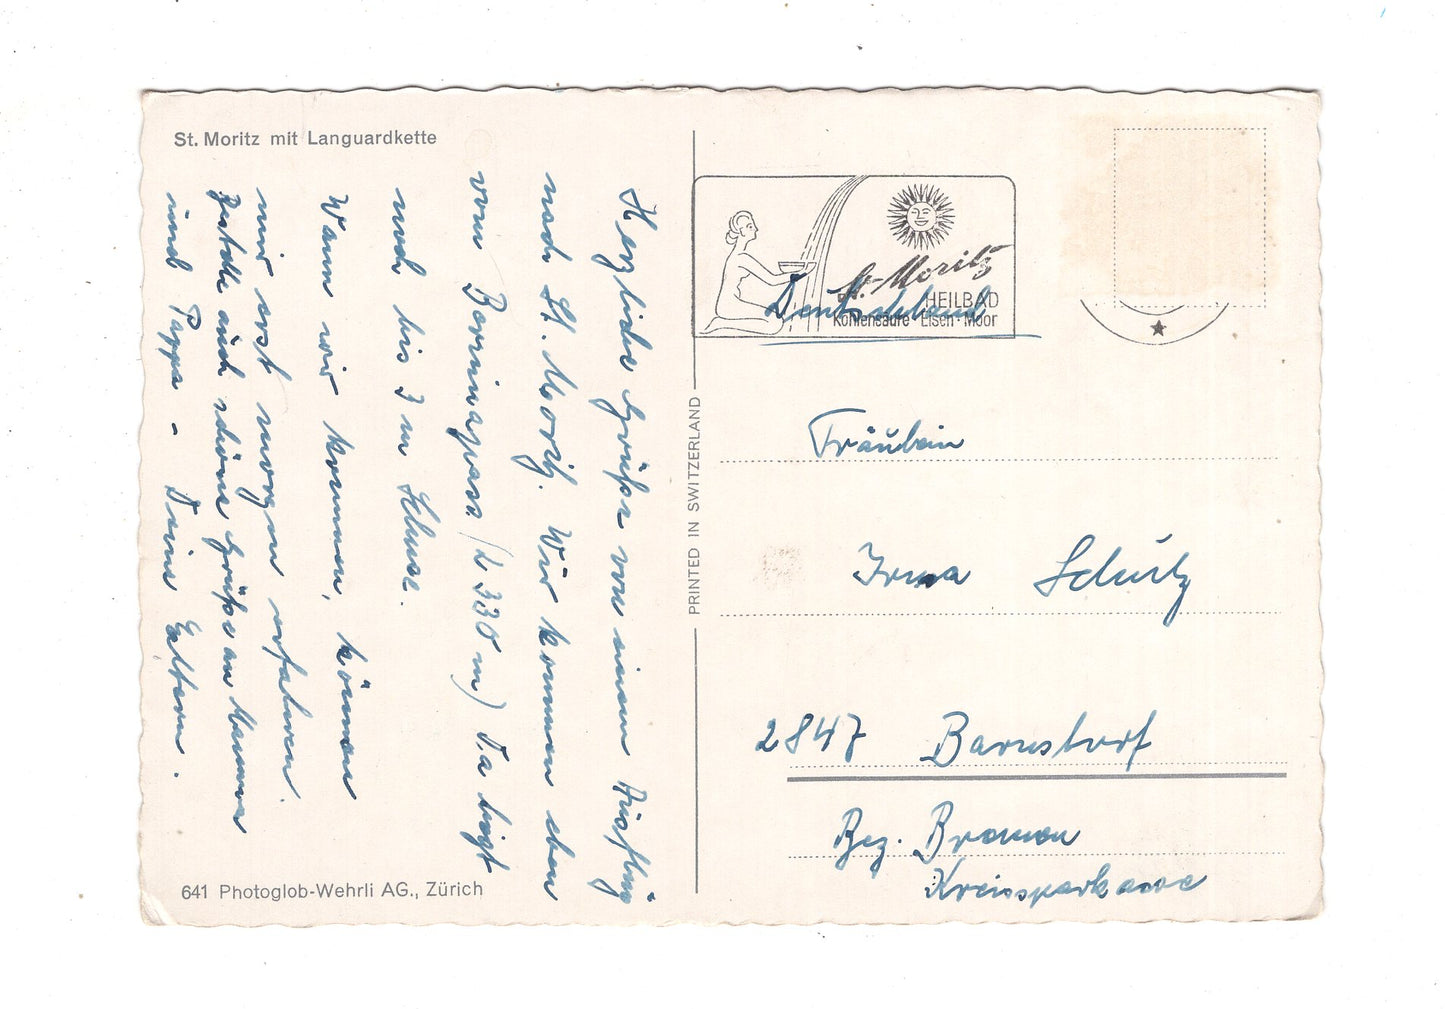 St. Moritz mit Languardkette
Herzliche Grüße von einem Ausflug
nach St. Moritz. Wir kommen eben
vom Berninapass (2330 m) Da liegt
noch bis 3 m Schnee.
Wann wir kommen, können
wir erst morgen erfahren.
Bestelle auch schöne Grüße an Mamma
und Pappa - Deine Eltern.
641 Photoglob-Wehrli AG., Zürich
PRINTED IN SWITZERLAND
St. Moritz
HEILBAD
Kohlensäure · Eisen · Moor
Deutschland
Fräulein
Irma Schütz
2847 Barnstorf
Bez. Bremen
Kreissparkasse